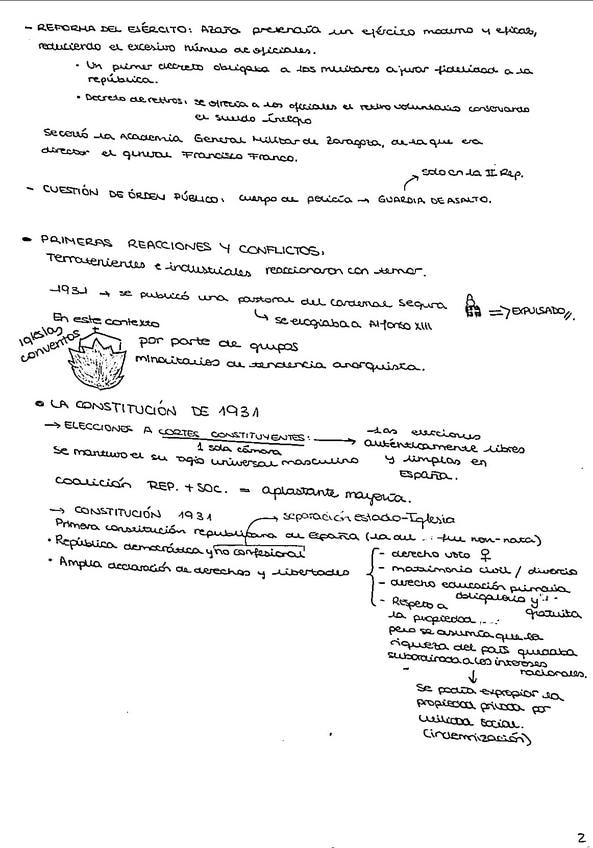 - REFORMA DEL EJÉRCITO: Azaña pretendía un ejército moderno y eficaz,
reduciendo el excesivo número de oficiales.
• Un primer decreto obligaba a los militares a jurar fidelidad a la
república.
• Decreto de retiros: se ofrecía a los oficiales el retiro voluntario conservando
el sueldo íntegro
Se cerró la Academia General Militar de Zaragoza, de la que era
director el general Francisco Franco.
solo en la II Rep.
- CUESTIÓN DE ÓRDEN PÚBLICO: cuerpo de policía → GUARDIA DE ASALTO.
• PRIMERAS REACCIONES Y CONFLICTOS:
Terratenientes e industriales reaccionaron con temor.
1931 → se publicó una pastoral del cardenal Segura ⇒ EXPULSADO//.
↳ se elogiaba a Alfonso XIII
En este contexto
Iglesias
conventos
por parte de grupos
minoritarios de tendencia anarquista.
• LA CONSTITUCIÓN DE 1931
→ ELECCIONES A CORTES CONSTITUYENTES: → las elecciones
1 sola cámara
auténticamente libres
y limpias en
España.
Se mantuvo el su agio universal masculino
Coalición REP. + SOC. = aplastante mayoría.
→ CONSTITUCIÓN 1931 → separación Estado-Iglesia
Primera constitución republicana de España (la del fue non-nata)
• República democrática y no confesional
• Amplia declaración de derechos y libertades
- derecho voto ♀
- matrimonio civil / divorcio
- derecho educación primaria
obligatoria y
gratuita
- Respeto a
la propiedad
pero se asumía que la
riqueza del país quedaba
subordinada a los intereses
nacionales.
↓
Se podía expropiar la
propiedad privada por
utilidad social.
(indemnización)
2